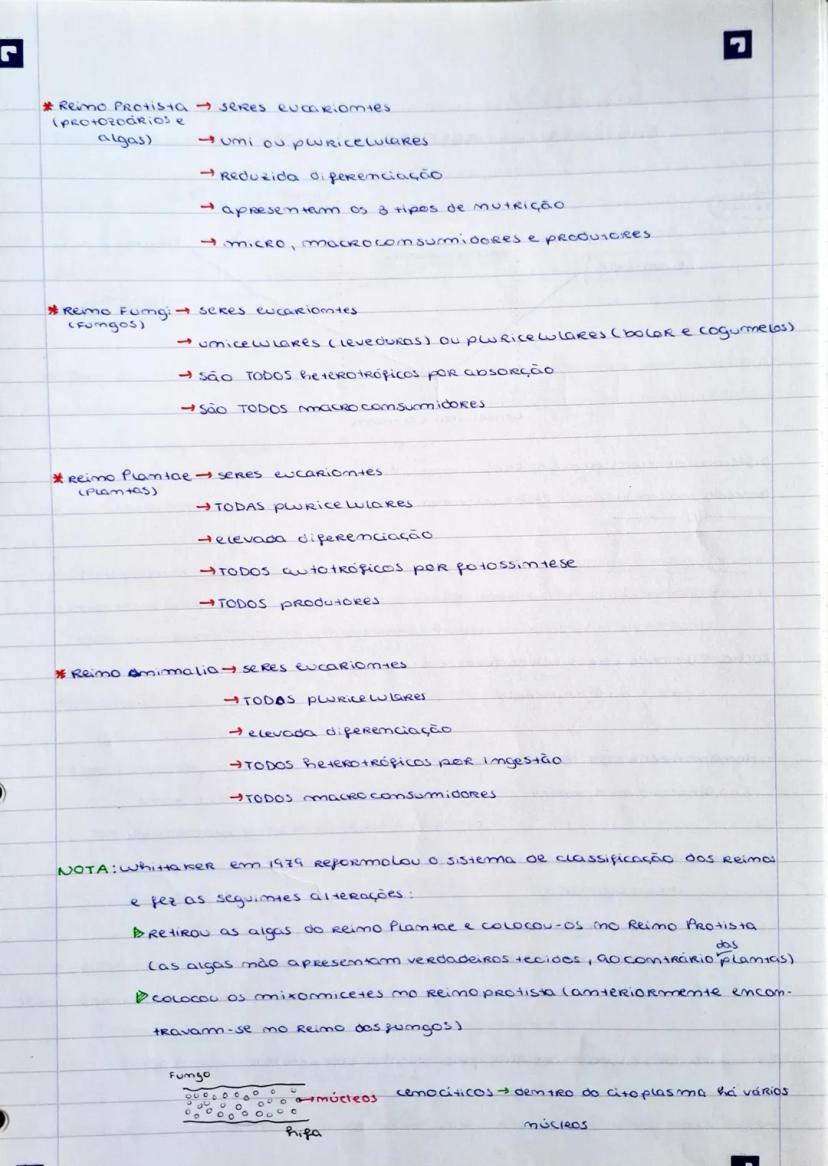 * Reino Protista → seres eucariontes
(protozoários e
algas)
→ uni ou pluricelulares
→ Reduzida diferenciação
→ apresentam os 3 tipos de nutrição
→ micro, macroconsumidores e produtores
* Reino Fungi → seres eucariontes
(Fungos)
→ unicelulares (leveduras) ou pluricelulares (bolor e cogumelos)
→ são TODOS heterotróficos por absorção
→ são TODOS macroconsumidores
* Reino Plantae → seres eucariontes
(Plantas)
→ TODAS pluricelulares
→ elevada diferenciação
→ TODOS autotróficos por fotossíntese
→ TODOS produtores
* Reino Animalia → seres eucariontes
→ TODOS pluricelulares
→ elevada diferenciação
→ TODOS heterotróficos por ingestão
→ TODOS macroconsumidores
NOTA: Whittaker em 1979 reformolou o sistema de classificação dos Reinos
e fez as seguintes alterações:
▷ Retirou as algas do Reino Plantae e colocou-os no Reino Protista
(as algas não apresentam verdadeiros tecidos, ao contrário das plantas)
▷ colocou os mixomicetes no reino protista (anteriormente encon-
travam-se no Reino dos fungos)
Fungo
→ núcleos cenocíticos → dentro do citoplasma há vários
núcleos
hifa